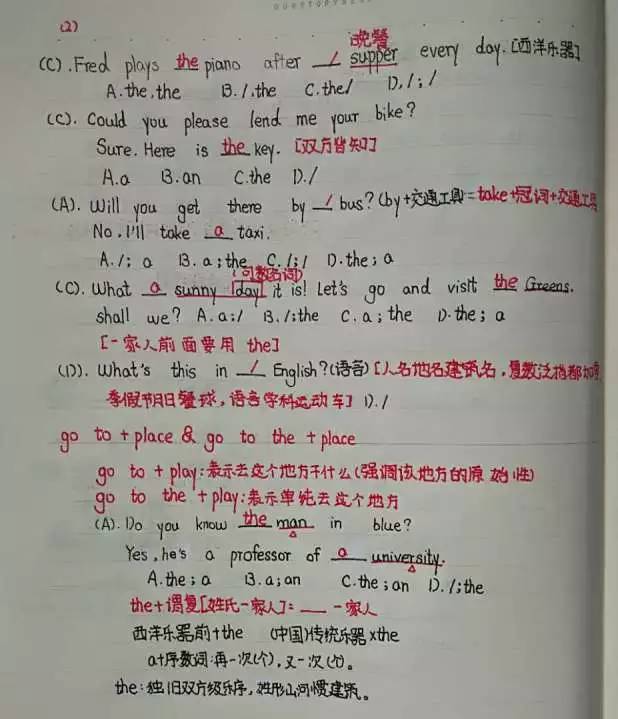 (2)
晚餐
(C). Fred plays the piano after / supper every day. [西洋乐器]
A. the, the B. /, the C. the / D. / ; /
(C). Could you please lend me your bike?
Sure. Here is the key. [双方皆知]
A. a B. an C. the D. /
(A). Will you get there by / bus? (by+交通工具=take+冠词+交通工具
No. I'll take a taxi.
A. / ; a B. a ; the C. / ; / D. the ; a
(可数名词)
(C). What a sunny day it is! Let's go and visit the Greens.
shall we? A. a ; / B. / ; the C. a ; the D. the ; a
[一家人前面要用 the]
(D). What's this in / English? (语言) [人名地名建筑名,复数泛指都加
季假节日餐球,语言学科运动车] D. /
go to + place & go to the + place
go to + play: 表示去这个地方干什么(强调该地方的原始性)
go to the + play: 表示单纯去这个地方
(A). Do you know the man in blue?
Yes, he's a professor of a university.
A. the ; a B. a ; an C. the ; an D. / ; the
the+谓复[姓氏一家人]: ___ 一家人
西洋乐器前+the (中国)传统乐器×the
a+序数词: 再一次(个), 又一次(个)。
the: 独旧双方级乐序, 姓形山河惯建筑。